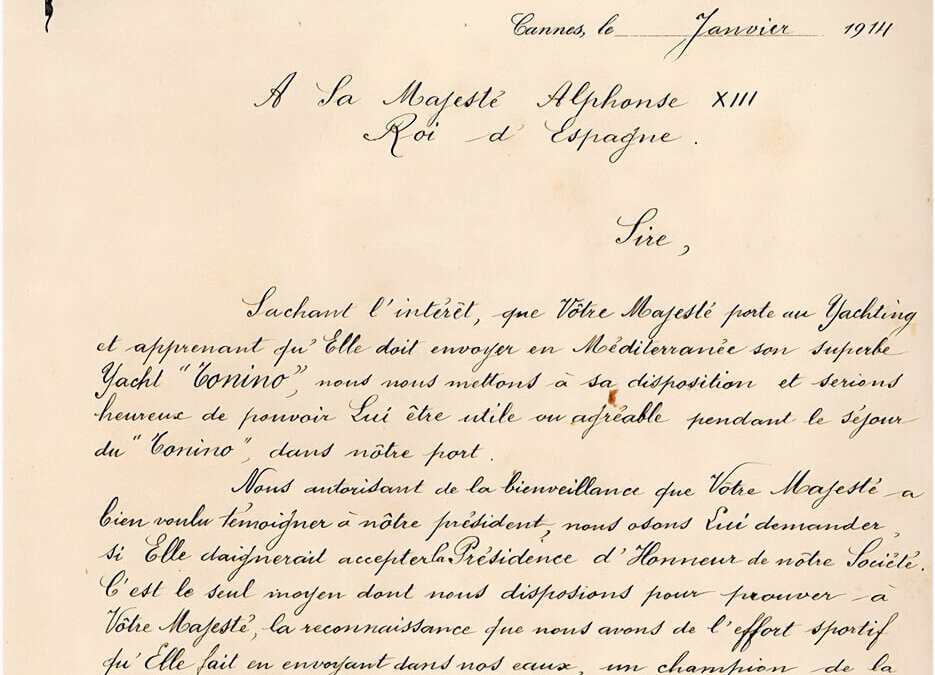 Cannes, le Janvier 1914
A Sa Majesté Alphonse XIII
Roi d'Espagne.
Sire,
Sachant l'intérêt, que Vôtre Majesté porte au Yachting
et apprenant qu'Elle doit envoyer en Méditerranée son superbe
Yacht "Tonino", nous nous mettons à sa disposition et serions
heureux de pouvoir Lui être utile ou agréable pendant le séjour
du "Tonino", dans nôtre port.
Nous autorisant de la bienveillance que Vôtre Majesté a
bien voulu témoigner à nôtre président, nous osons Lui demander,
si Elle daignerait accepter la Présidence d'Honneur de nôtre Société.
C'est le seul moyen dont nous disposions pour prouver à
Vôtre Majesté, la reconnaissance que nous avons de l'effort sportif
qu'Elle fait en envoyant dans nos eaux, un champion de la